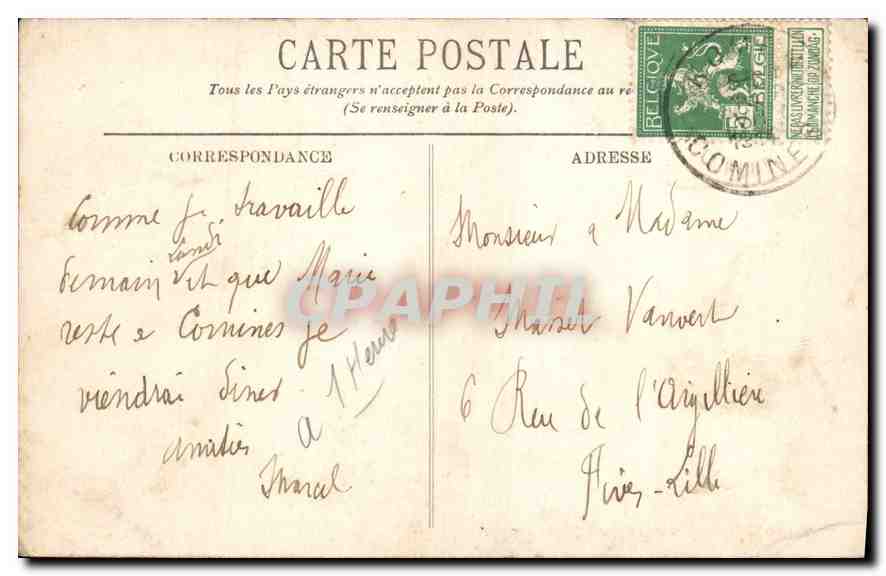 CARTE POSTALE
Tous les Pays étrangers n'acceptent pas la Correspondance au
(Se renseigner à la Poste).
BELGIQUE
5
BELGIE
NE PAS LIVRER LE DIMANCHE
COMINE
CORRESPONDANCE
Comme je travaille
Lundi
demain et que Marie
reste a Comines je
viendrai diner
a 1 Heure
amitiés
Marcel
ADRESSE
Monsieur a Madame
Vanvert
6 Rue de l'Argillière
Fives-Lille
CPAPHIL